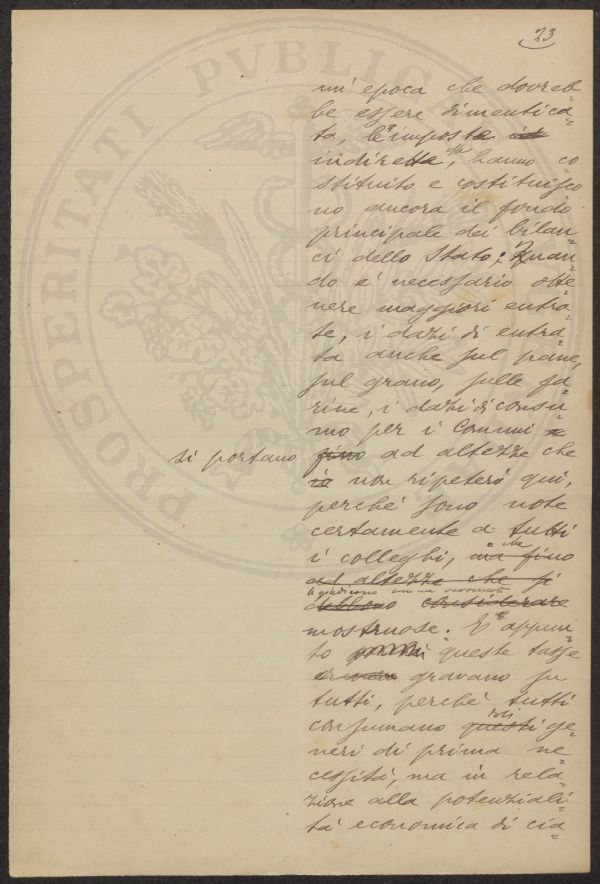 23
un' epoca che dovreb=
be essere dimentica=
ta, le imposte
indirette, hanno co
stituito e costituisco
no ancora il fondo
principale dei bilan=
ci dello Stato; Quan=
do e' necessario otte=
nere maggiori entra=
te, i dazi di entra=
ta anche sul pane,
sul grano, sulle fa=
rine, i dazi di consu=
mo per i Comuni
si portano fino ad altezze che
io non ripeterò qui,
perché sono note
certamente a tutti
i colleghi, ma fino
ad altezze che si
debbono considerare
mostruose. E appun=
to queste tasse
gravano su
tutti, perché tutti
consumano questi ge=
neri di prima ne=
cessità, ma in rela=
zione alla potenziali=
tà economica di cia=
PROSPERITATI PVBLICA